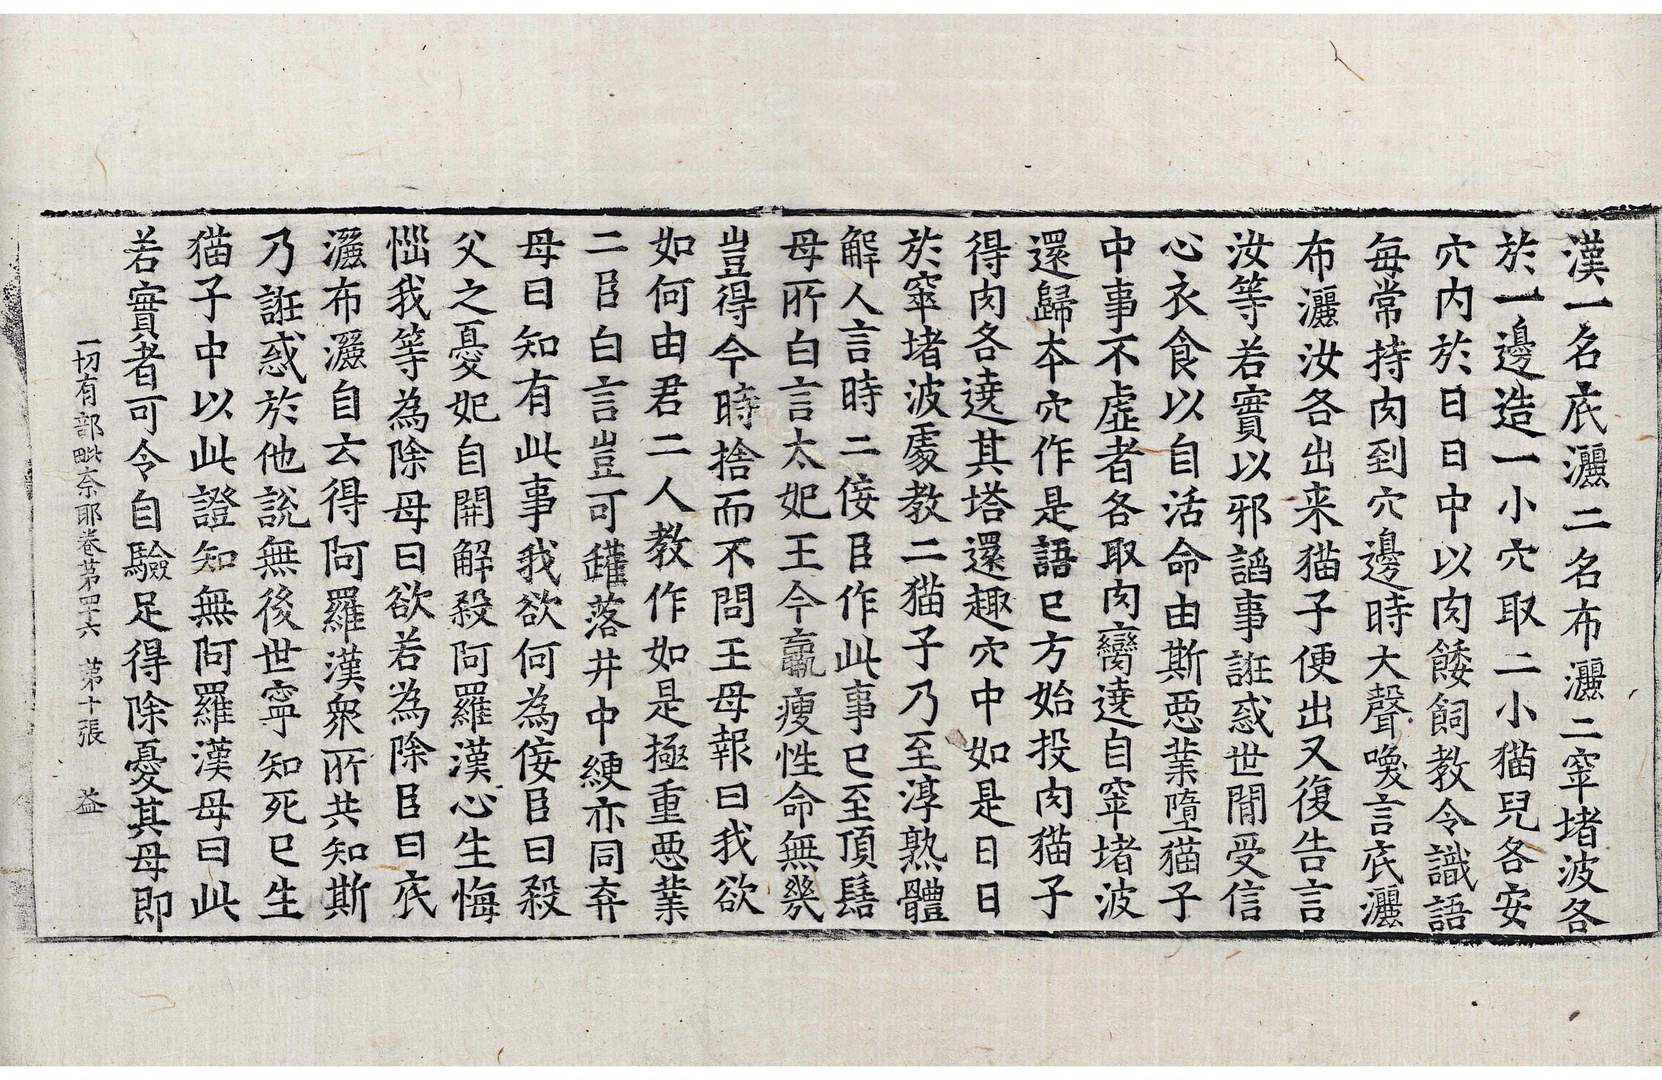 漢一名底灑二名布灑二窣堵波各
於一邊造一小穴取二小猫兒各安
穴內於日日中以肉餧飼教令識語
每常持肉到穴邊時大聲喚言底灑
布灑汝各出来猫子便出又復告言
汝等若實以邪謟事誑惑世閒受信
心衣食以自活命由斯惡業墮猫子
中事不虛者各取肉臠遶自窣堵波
還歸本穴作是語已方始投肉猫子
得肉各遶其塔還趣穴中如是日日
於窣堵波處教二猫子乃至淳熟體
解人言時二侫臣作此事已至頂髻
母所白言太妃王今羸瘦性命無幾
豈得今時捨而不問王母報曰我欲
如何由君二人教作如是極重惡業
二臣白言豈可鑵落井中綆亦同弃
母曰知有此事我欲何為侫臣曰殺
父之憂妃自開解殺阿羅漢心生悔
惱我等為除母曰欲若為除臣曰底
灑布灑自云得阿羅漢衆所共知斯
乃誑惑於他說無後世寧知死已生
猫子中以此證知無阿羅漢母曰此
若實者可令自驗足得除憂其母即
一切有部毗奈耶卷第四十六 第十張 益